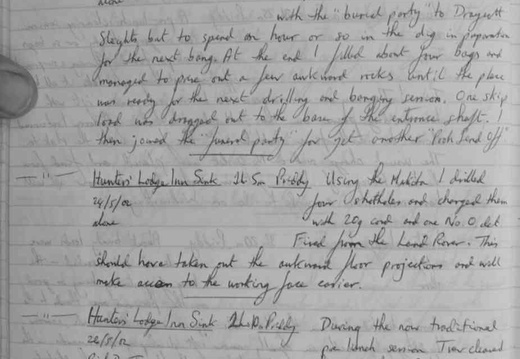 alone
with the "burial party" to Draycott
Sleights but to spend an hour or so in the dig in preparation
for the next bang. At the end I filled about four bags and
managed to prise out a few awkward rocks until the place
was ready for the next drilling and banging session. One skip
load was dragged out to the base of the entrance shaft. I
then joined the "funeral party" for yet another "Posh Send Off".
— " — Hunters' Lodge Inn Sink Priddy Using the Makita I drilled
24/5/02 four shotholes and charged them
alone with 20g cord and one No. 0 det.
Fired from the Land Rover. This
should have taken out the awkward floor projections and will
make access to the working face easier.
— " — Hunters' Lodge Inn Sink Priddy During the now traditional
26/5/02 pre lunch session Trev cleared